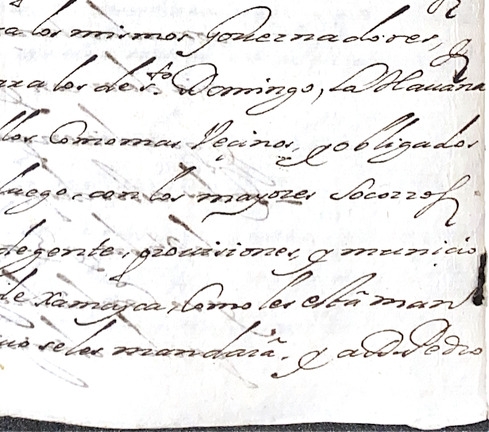 a los mismos Gouernadores, y
ra los de s.to Domingo, La Hauana
los Comomas Veçinos, y obligados
luego, con los mayores Socorros
degente, prouisiones, y munitio
de Xamayca, Como les está man
se les mandará, y a D. Pedro